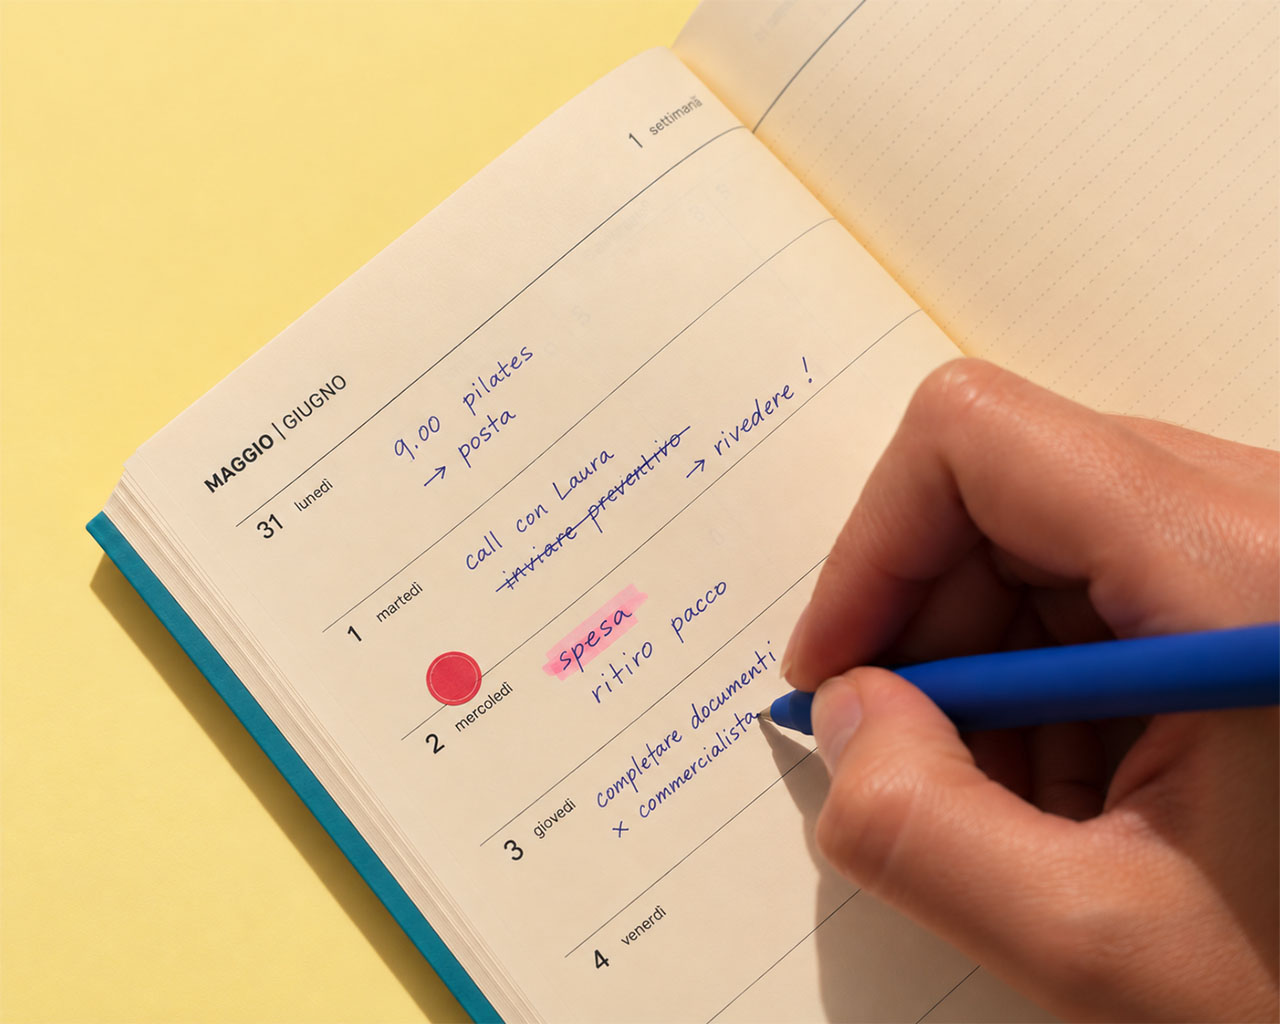 1 settimana
MAGGIO | GIUGNO
31 lunedì
9.00 pilates
→ posta
1 martedì
call con Laura
inviare preventivo → rivedere !
2 mercoledì
spesa
ritiro pacco
3 giovedì
completare documenti
x commercialista
4 venerdì